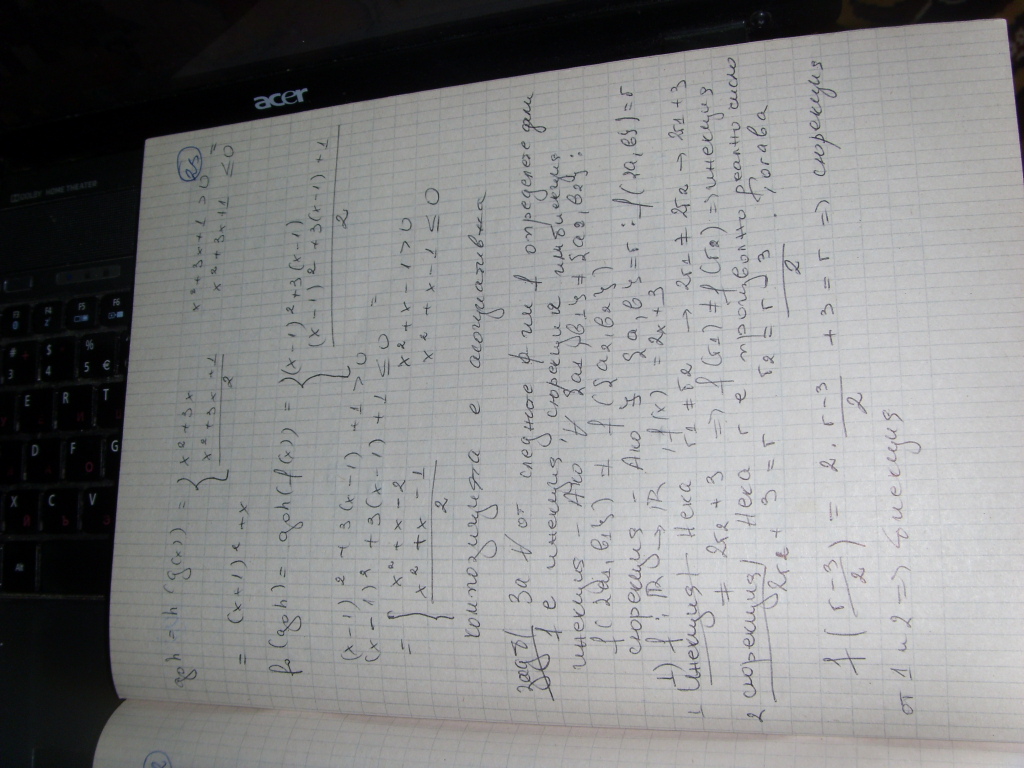 25
goh = h(g(x)) = { x² + 3x    x² + 3x + 1 > 0 =
x² + 3x + 1 / 2    x² + 3x + 1 ≤ 0
= (x+1)² + x
fo(goh) = goh(f(x)) = { (x-1)² + 3(x-1)
(x-1)² + 3(x-1) + 1 / 2
(x-1)² + 3(x-1) + 1 > 0
(x-1)² + 3(x-1) + 1 ≤ 0 =
= { x² + x - 2    x² + x - 1 > 0
x² + x - 1 / 2    x² + x - 1 ≤ 0
композицията е асоциативна
зад 6/ За ∀ от следните ф-ии f определете дали
f е инекция, сюрекция и
инекция - Ако ∀ {a1, b1} ≠ {a2, b2}:
f({a1, b1}) ≠ f({a2, b2})
сюрекция - Ако ∃ {a, b} = r : f({a, b}) = r
1) f: ℝ → ℝ, f(x) = 2x + 3
1 Инекция/ - Нека r1 ≠ r2 → 2r1 ≠ 2r2 → 2r1 + 3
≠ 2r2 + 3 => f(r1) ≠ f(r2) => инекция
2 сюрекция/ Нека r е произволно реално число
2r2 + 3 = r    r2 = r - 3 / 2. Тогава
f(r-3 / 2) = 2 . r-3 / 2 + 3 = r => сюрекция
от 1 и 2 => биекция
acer
DOLBY HOME THEATER
F5
F6
E
R
T
D
F
G
X
C
V